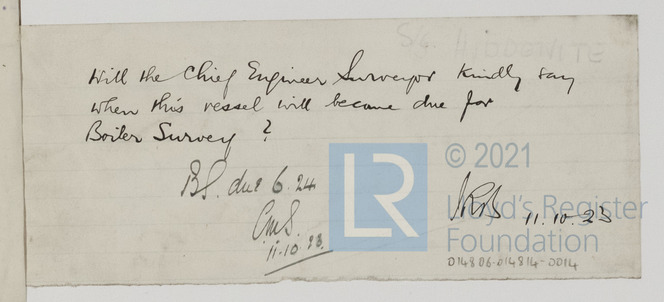 S/S. HIBBONITE
Will the Chief Engineer Surveyor kindly say
when this vessel will become due for
Boiler Survey ?
BS. due 6.24
C.M.S.
11.10.23.
11.10.23
LR
© 2021
Lloyd's Register
Foundation
014806-014814-0014